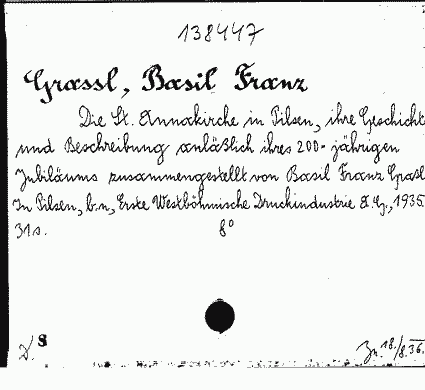 138447
Grassl, Basil Franz
Die St. Annakirche in Pilsen, ihre Geschicht
und Beschreibung anläßlich ihres 200-jährigen
Jubiläums zusammengestellt von Basil Franz Grassl
In Pilsen, b.n., Erste Westböhmische Druckindustrie A.G., 1935.
31 s. 8°
D. 8
18./8.36.